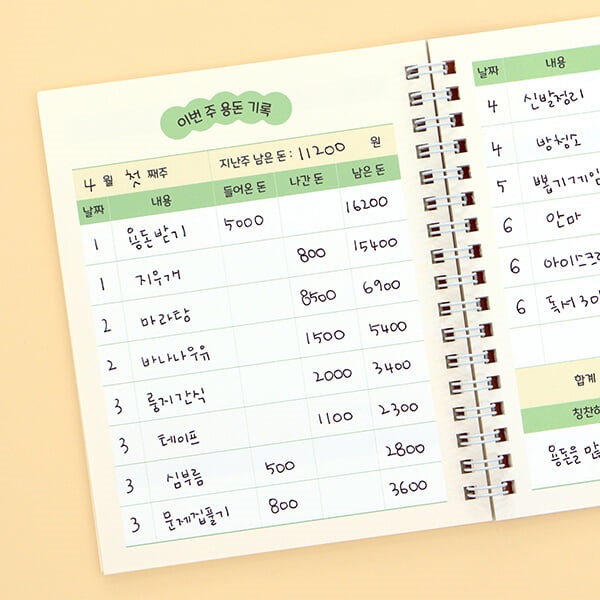 이번 주 용돈 기록
4 월 첫 째주 지난주 남은 돈 : 11200 원
날짜 내용 들어온 돈 나간 돈 남은 돈
1 용돈받기 5000 16200
1 지우개 800 15400
2 마라탕 8500 6900
2 바나나우유 1500 5400
3 룽지간식 2000 3400
3 테이프 1100 2300
3 심부름 500 2800
3 문제집풀기 800 3600
날짜 내용
4 신발정리
4 방청소
5 뽑기게임
6 안마
6 아이스크
6 독서 30
합계
칭찬하
용돈을